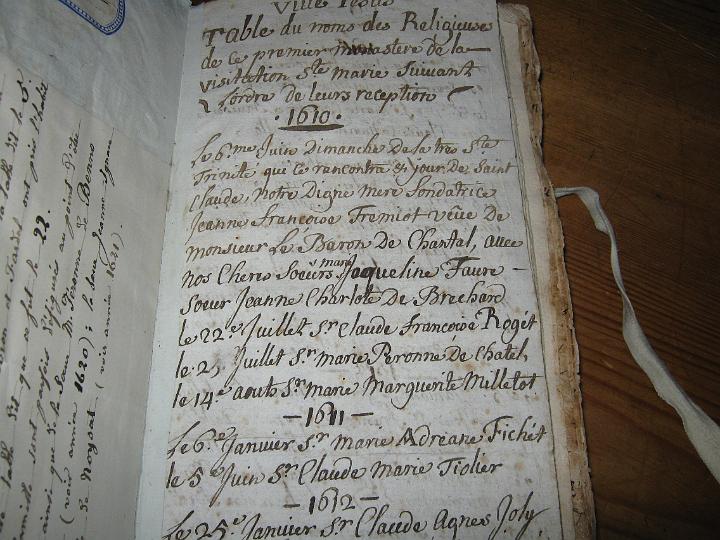 Vive Jesus
Table du noms des Religieuse
de ce premier monastere de la
visitation Ste marie Suivant
l'ordre de leurs reception
1610
Le 6.me Juin Dimanche De la tres Ste
Trinité qui ce rencontra jour De Saint
Claude, Notre Digne mere fondatrice
Jeanne françoise Fremiot veüe De
monsieur Le Baron De Chantal, avec
nos Cheres Soeurs marie Jaqueline Favre
Soeur Jeanne Charlote De Brechard
le 22.e Juillet Sr Claude françoise Rogét
le 2, Juillet Sr marie Peronne De Chatel,
le 14.e aouts Sr marie Marguerite Milletot
1611
Le 6.e Janvier Sr Marie Adréane Fichét
le 5e Juin Sr Claude Marie Tiolier
1612
Le 25.e Janvier Sr Claude Agnes Joly
la table dit le 5.
que ce fut le 22.
sont parfois
ainsi que de la Soeur M. Peronne de
(voir année 1620) ; la Soeur Jeanne Agnes
(voir année 1621).